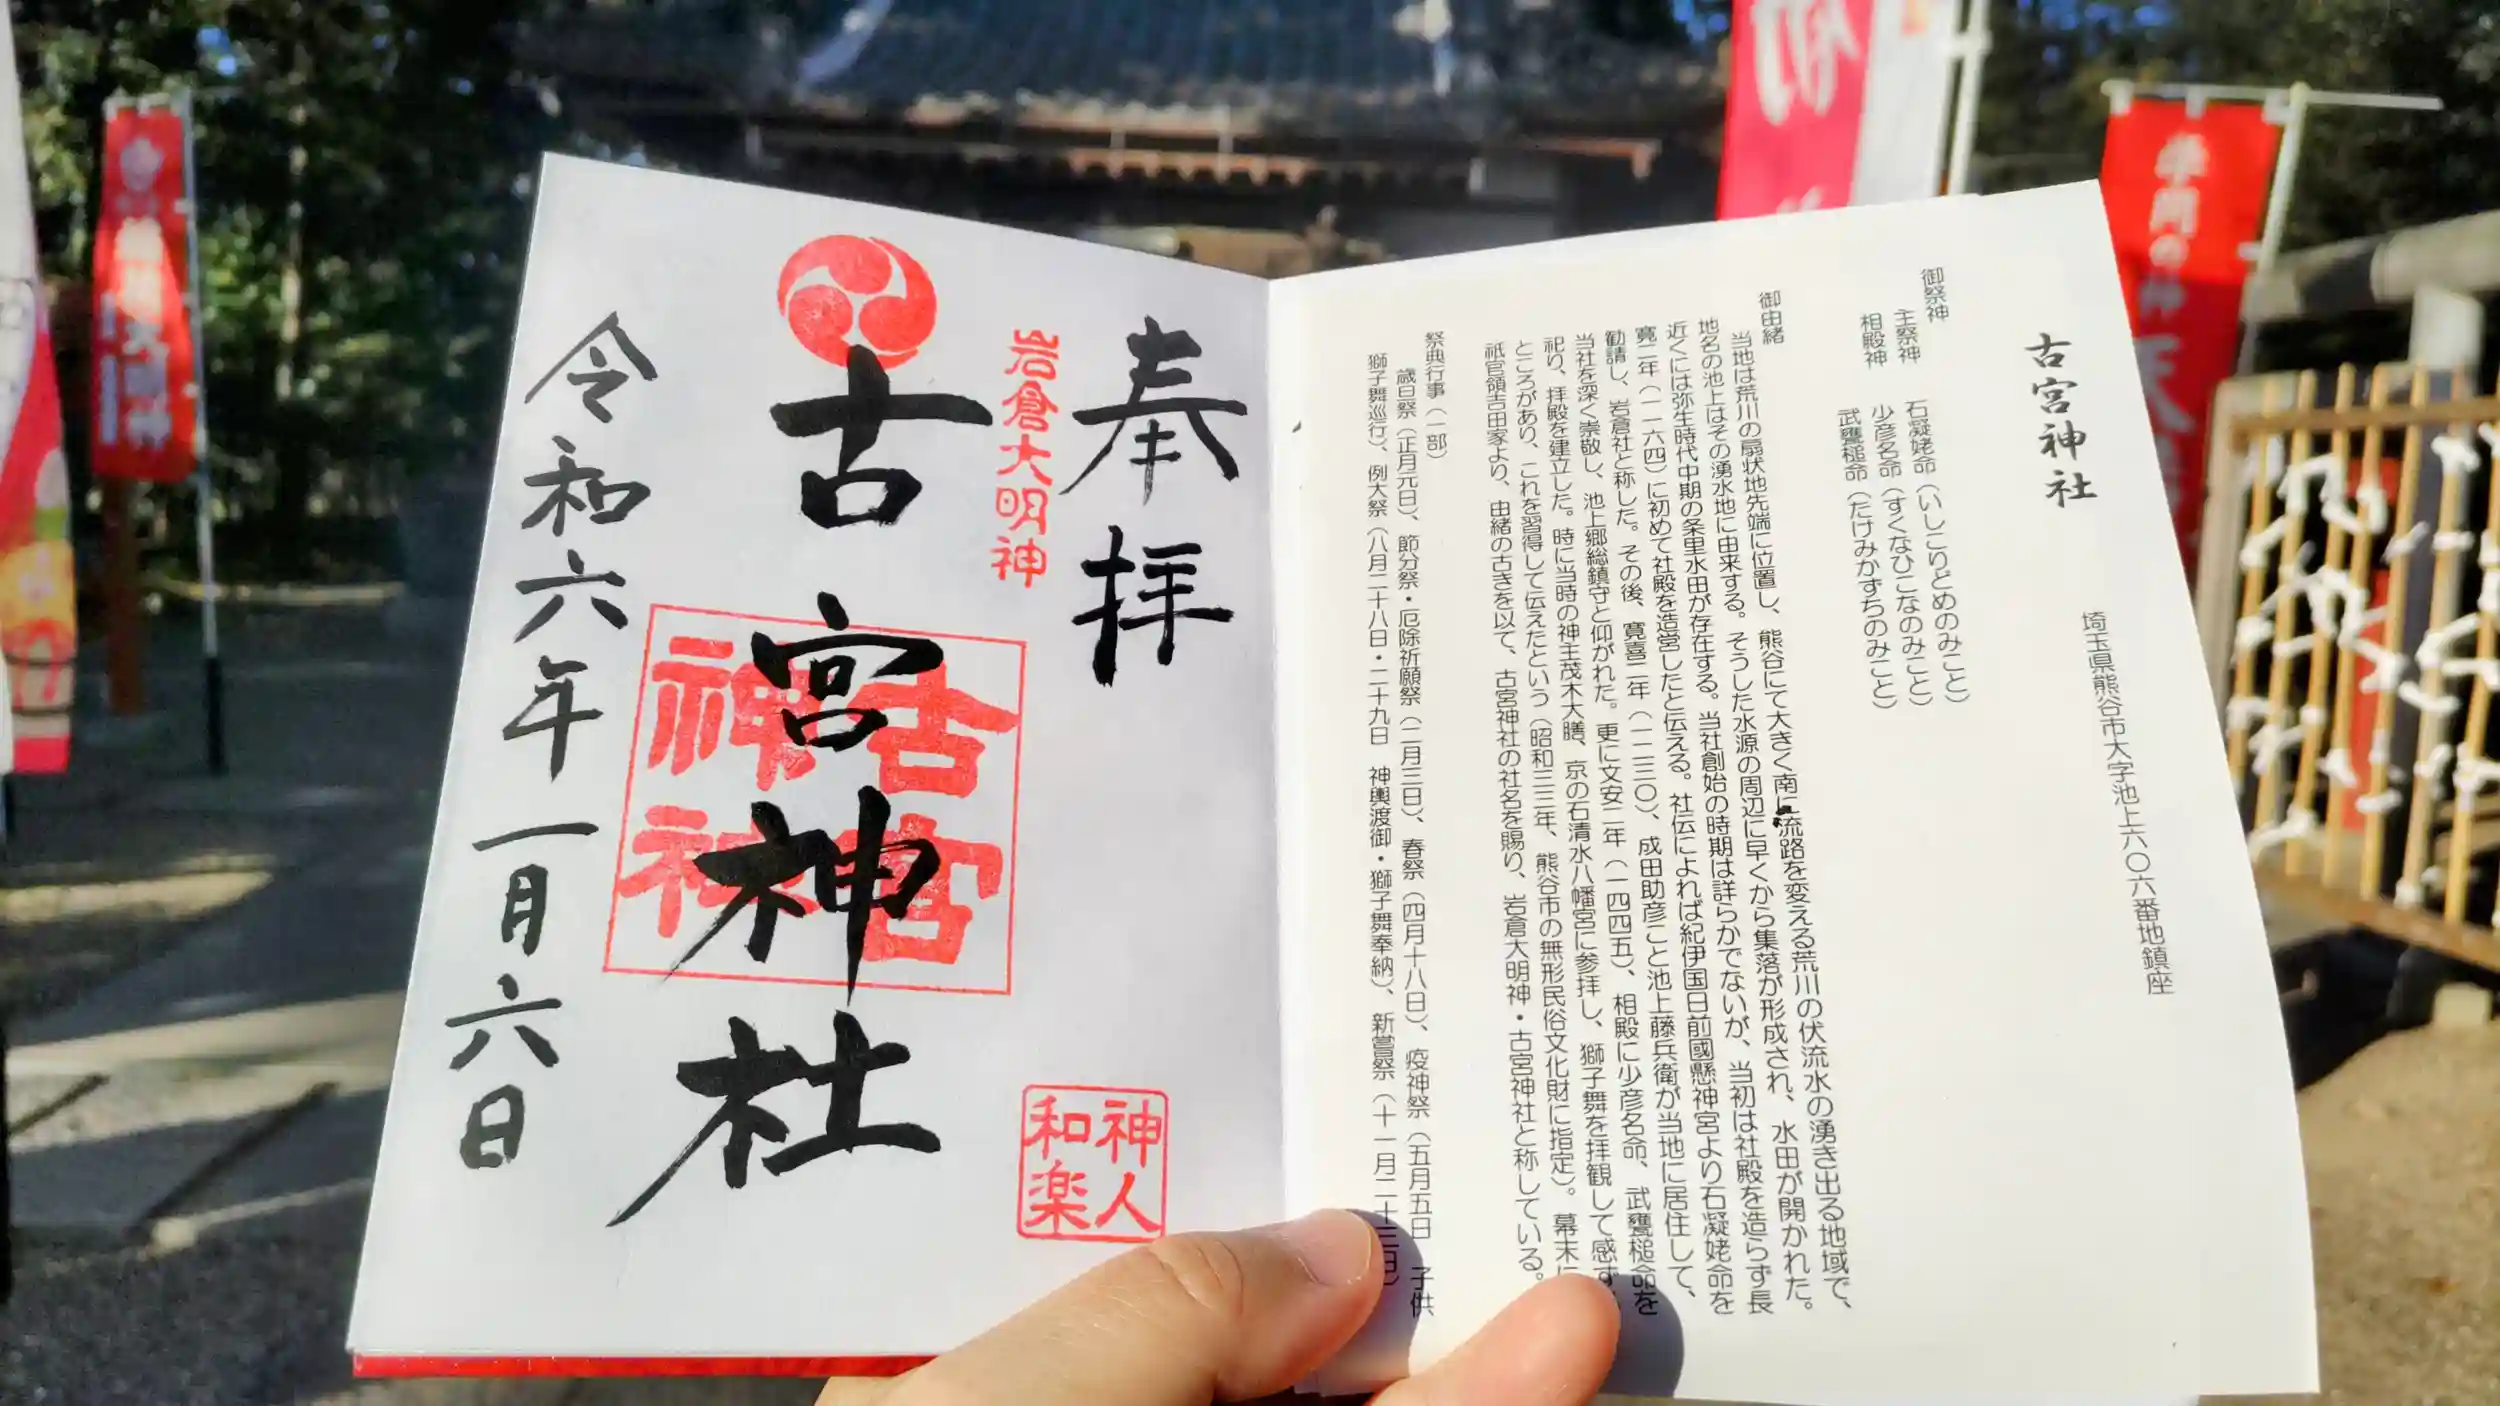 古宮神社
埼玉県熊谷市大字池上六〇六番地鎮座
御祭神
主祭神　石凝姥命（いしこりどめのみこと）
相殿神　少彦名命（すくなひこなのみこと）
武甕槌命（たけみかずちのみこと）
御由緒
当地は荒川の扇状地先端に位置し、熊谷にて大きく南に流路を変える荒川の伏流水の湧き出る地域で、
地名の池上はその湧水地に由来する。そうした水源の周辺に早くから集落が形成され、水田が開かれた。
近くには弥生時代中期の条里水田が存在する。当社創始の時期は詳らかでないが、当初は社殿を造らず長
寛二年（一一六四）に初めて社殿を造営したと伝える。社伝によれば紀伊国日前國懸神宮より石凝姥命を
勧請し、岩倉社と称した。その後、寛喜二年（一二三〇）、成田助彦こと池上藤兵衛が当地に居住して、
当社を深く崇敬し、池上郷総鎮守と仰がれた。更に文安二年（一四四五）、相殿に少彦名命、武甕槌命を
祀り、拝殿を建立した。時に当時の神主茂木大膳、京の石清水八幡宮に参拝し、獅子舞を拝観して感ず
ところがあり、これを習得して伝えたという（昭和三三年、熊谷市の無形民俗文化財に指定）。幕末に
祇官領吉田家より、由緒の古きを以て、古宮神社の社名を賜り、岩倉大明神・古宮神社と称している。
祭典行事（一部）
歳旦祭（正月元日）、節分祭・厄除祈願祭（二月三日）、春祭（四月十八日）、疫神祭（五月五日　子供
獅子舞巡行）、例大祭（八月二十八日・二十九日　神輿渡御・獅子舞奉納）、新嘗祭（十一月二十三日）
奉拝
岩倉大明神
神人和楽
古宮神社
古宮
神社
令和六年一月六日
初
学問の神
天